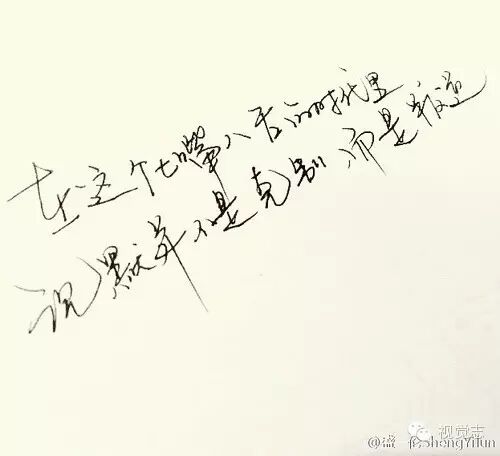 在这个七嘴八舌的时代里
沉默并不是克制而是叛逆
视觉志
@盛一伦ShengYilun